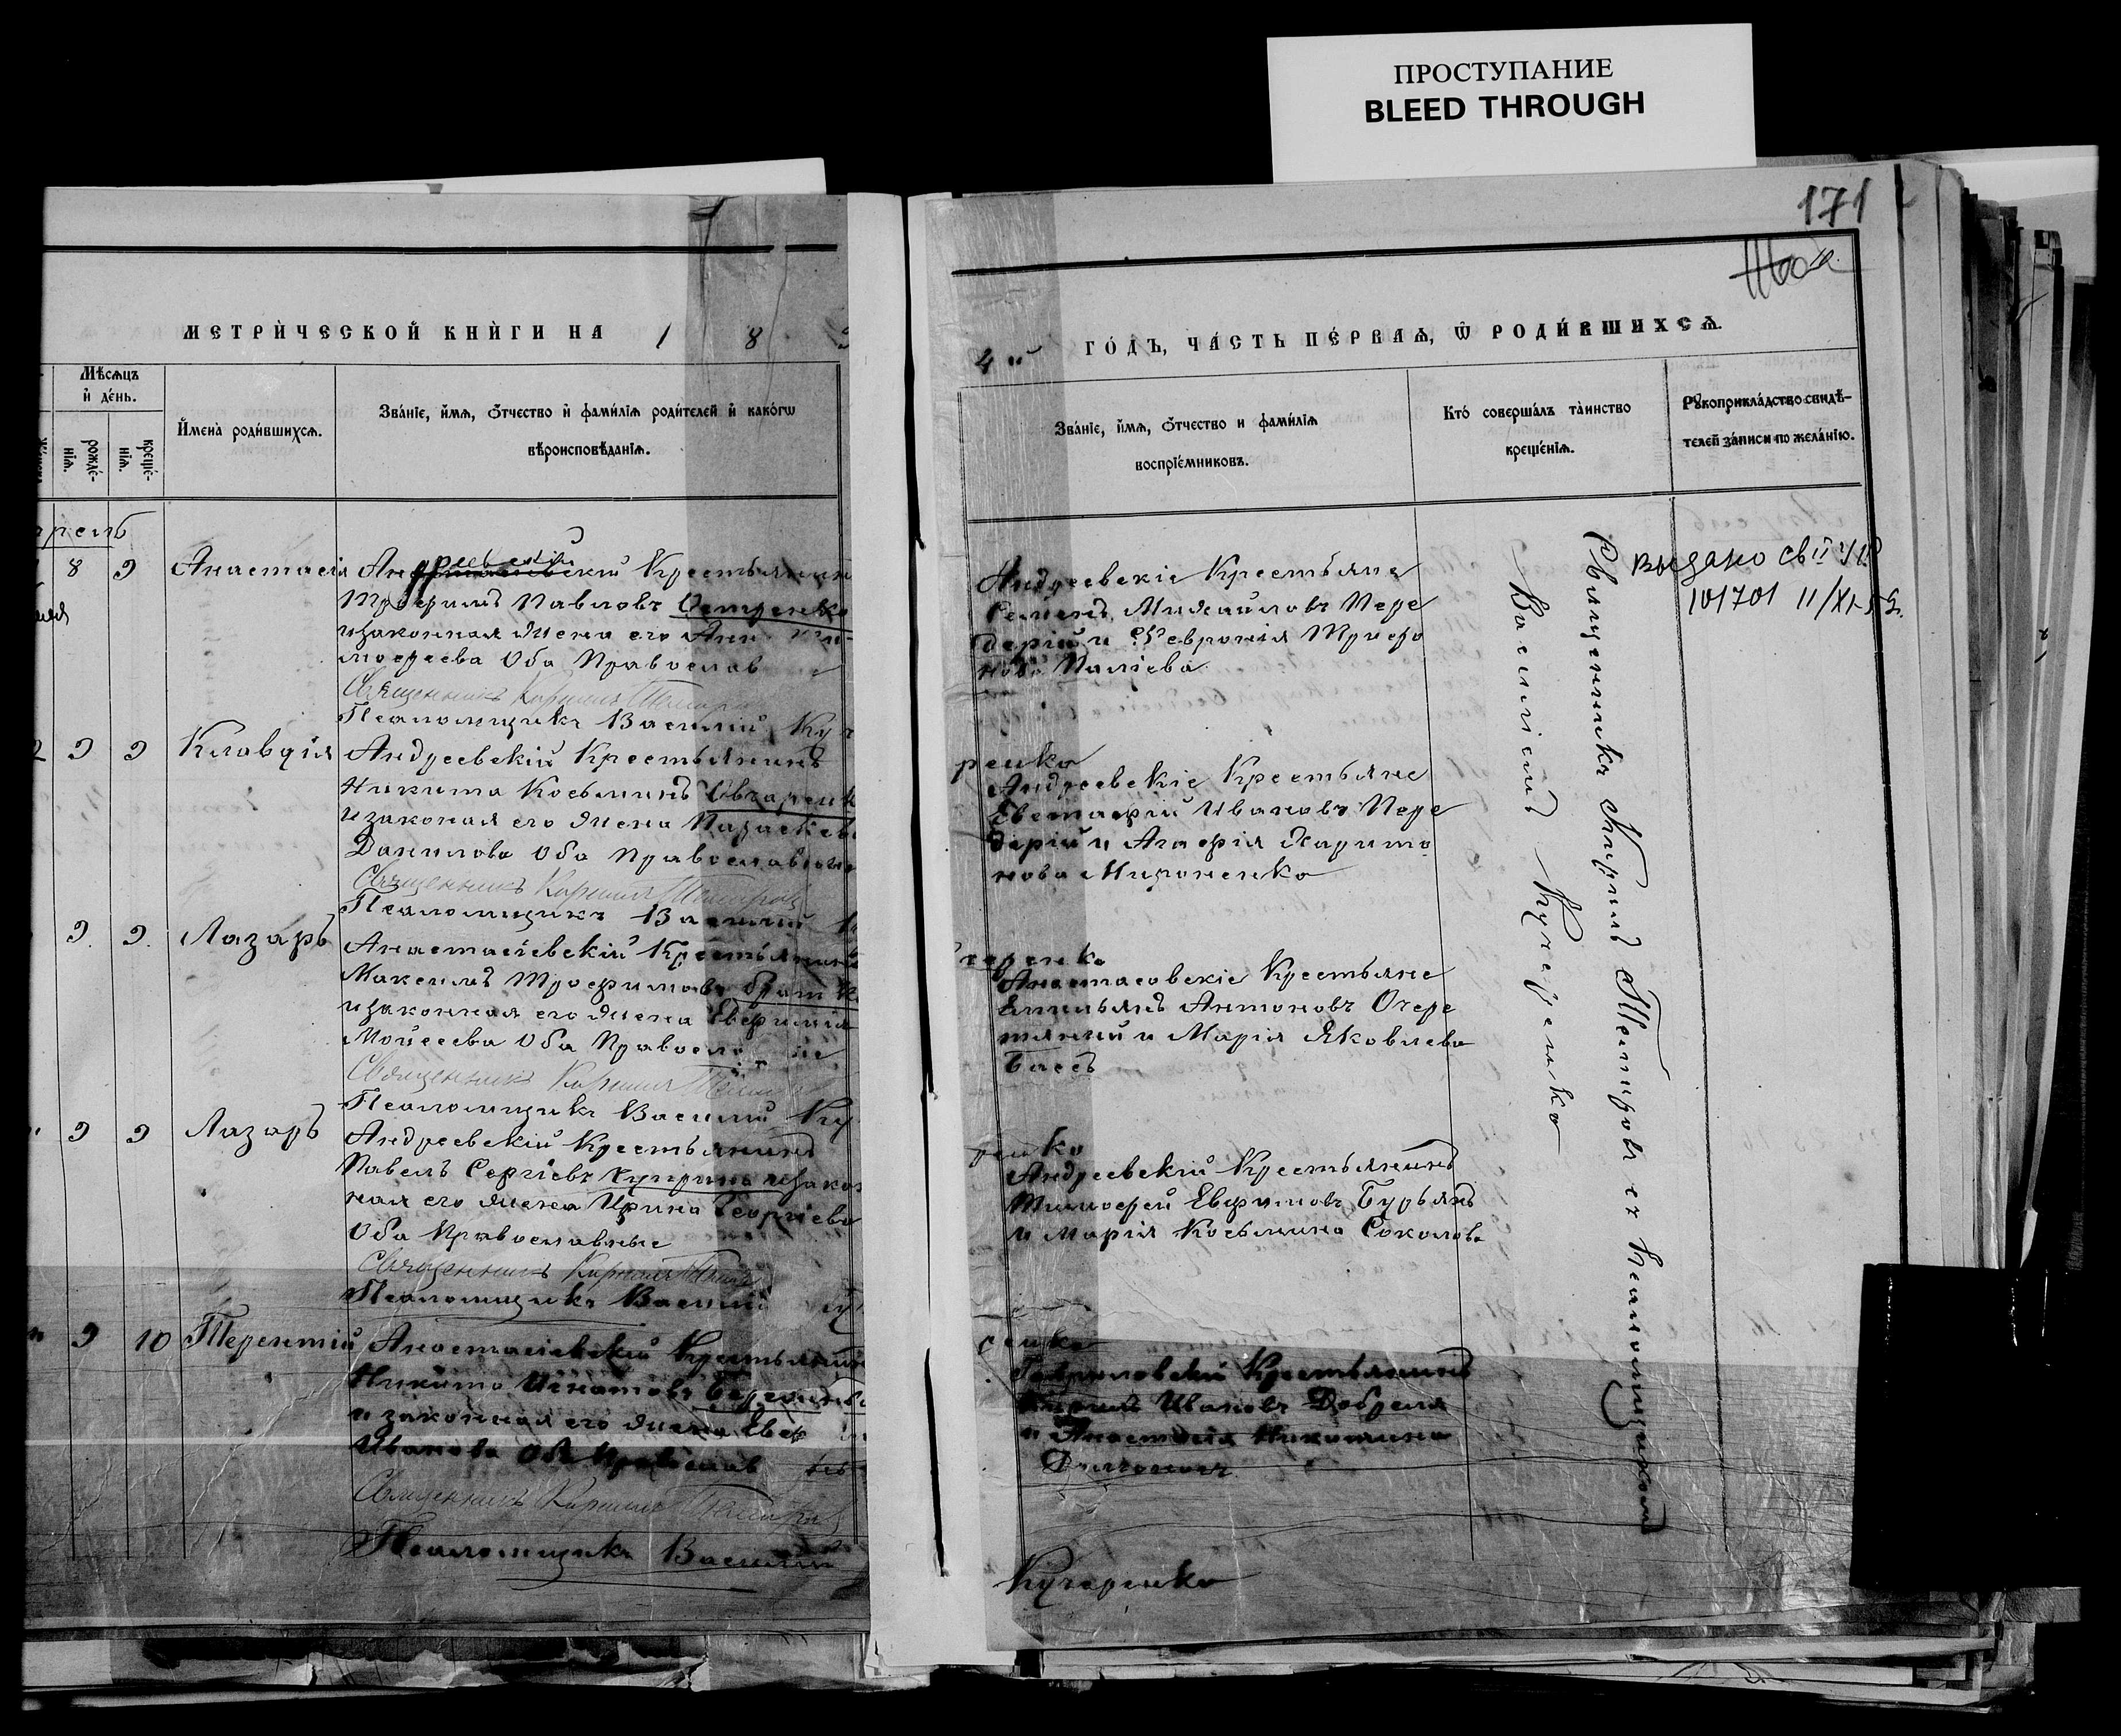 ПРОСТУПАНИЕ
BLEED THROUGH
171
МЕТРИ́ЧЕСКОЙ КНИ́ГИ НА 1 8 9
4 й ГО́ДЪ, ЧА́СТЬ ПЕ́РВАѦ, Ѿ РОДИ́ВШИХСѦ.
Мѣсѧцъ
и́ де́нь.
рожде́-
нїѧ.
креще́-
нїѧ.
И҆мена̀ роди́вшихсѧ.
Зва́нїе, и҆́мѧ, ѻ҆́тчество и҆ фами́лїѧ роди́телей и҆ како́гѡ
вѣроисповѣ́данїѧ.
Зва́нїе, и҆́мѧ, ѻ҆́тчество и фами́лїѧ
воспрїе́мниковъ.
Кто̀ соверша́лъ та̀инство
креще́нїѧ.
Рꙋкоприкла́дство свидѣ́-
телей за́писи по жела́нїю.
прель
8 9 Анастасія
Крестьянин
Трофимъ Павловъ Остренко
и законная жена его Анн
мофеева Оба Православ е
Священникъ Кириллъ
Псаломщикъ Василій Куч
Андреевскіе Крестьяне
Семенъ Михайловъ Пере
дерій и Февронія Трифо
нова Паліева
выдано св II
101701 11/XI
2 9 9 Клавдія
Андреевскій Крестьянинъ
Никита Косьминъ Овчаренк
и законая его жена Параскев
Данилова Оба Православные
Священникъ Кириллъ Петровъ
Псаломщикъ Василій К
ренко
Андреевскіе Крестьяне
Евстафій Ивановъ Пере
дерій и Агафія Харито
нова Мироненко
9. 9. Лазарь
Анастасіевскій Крестьянинъ
Максимъ Трофимовъ
и законная его жена Евфимія
Мойсеева Оба Правосла ые
Священникъ Кириллъ
Псаломщикъ Василій Куч
черенко
Анастасовскіе Крестьяне
Емильянъ Антоновъ Очере
тяный и Марія Яковлева
Басъ
9 9 Лазарь
Андреевскій Крестьянинъ
Павелъ Сергіевъ Купринъ и закон
ная его жена Ирина Георгіева
Оба Православные
Священникъ Кириллъ
Псаломщикъ Василій
ренко
Андреевскій Крестьянинъ
Тимофей Евфимовъ Бурьянъ
и Марія Косьмина Соколова
9 10 Терентій
Анастасіевскій Крестьянин
Никита Игнатовъ
и законная его жена Евф
Иванова Оба Православ
Священникъ Кириллъ Петровъ
Псаломщикъ Василій
ренко
Гавриловскій Крестьянинъ
Кириллъ Ивановъ Добреля
и Анастасія Никитина
Кучеренко
Священникъ Кириллъ Петровъ съ псаломщикомъ
Василіемъ Кучеренко